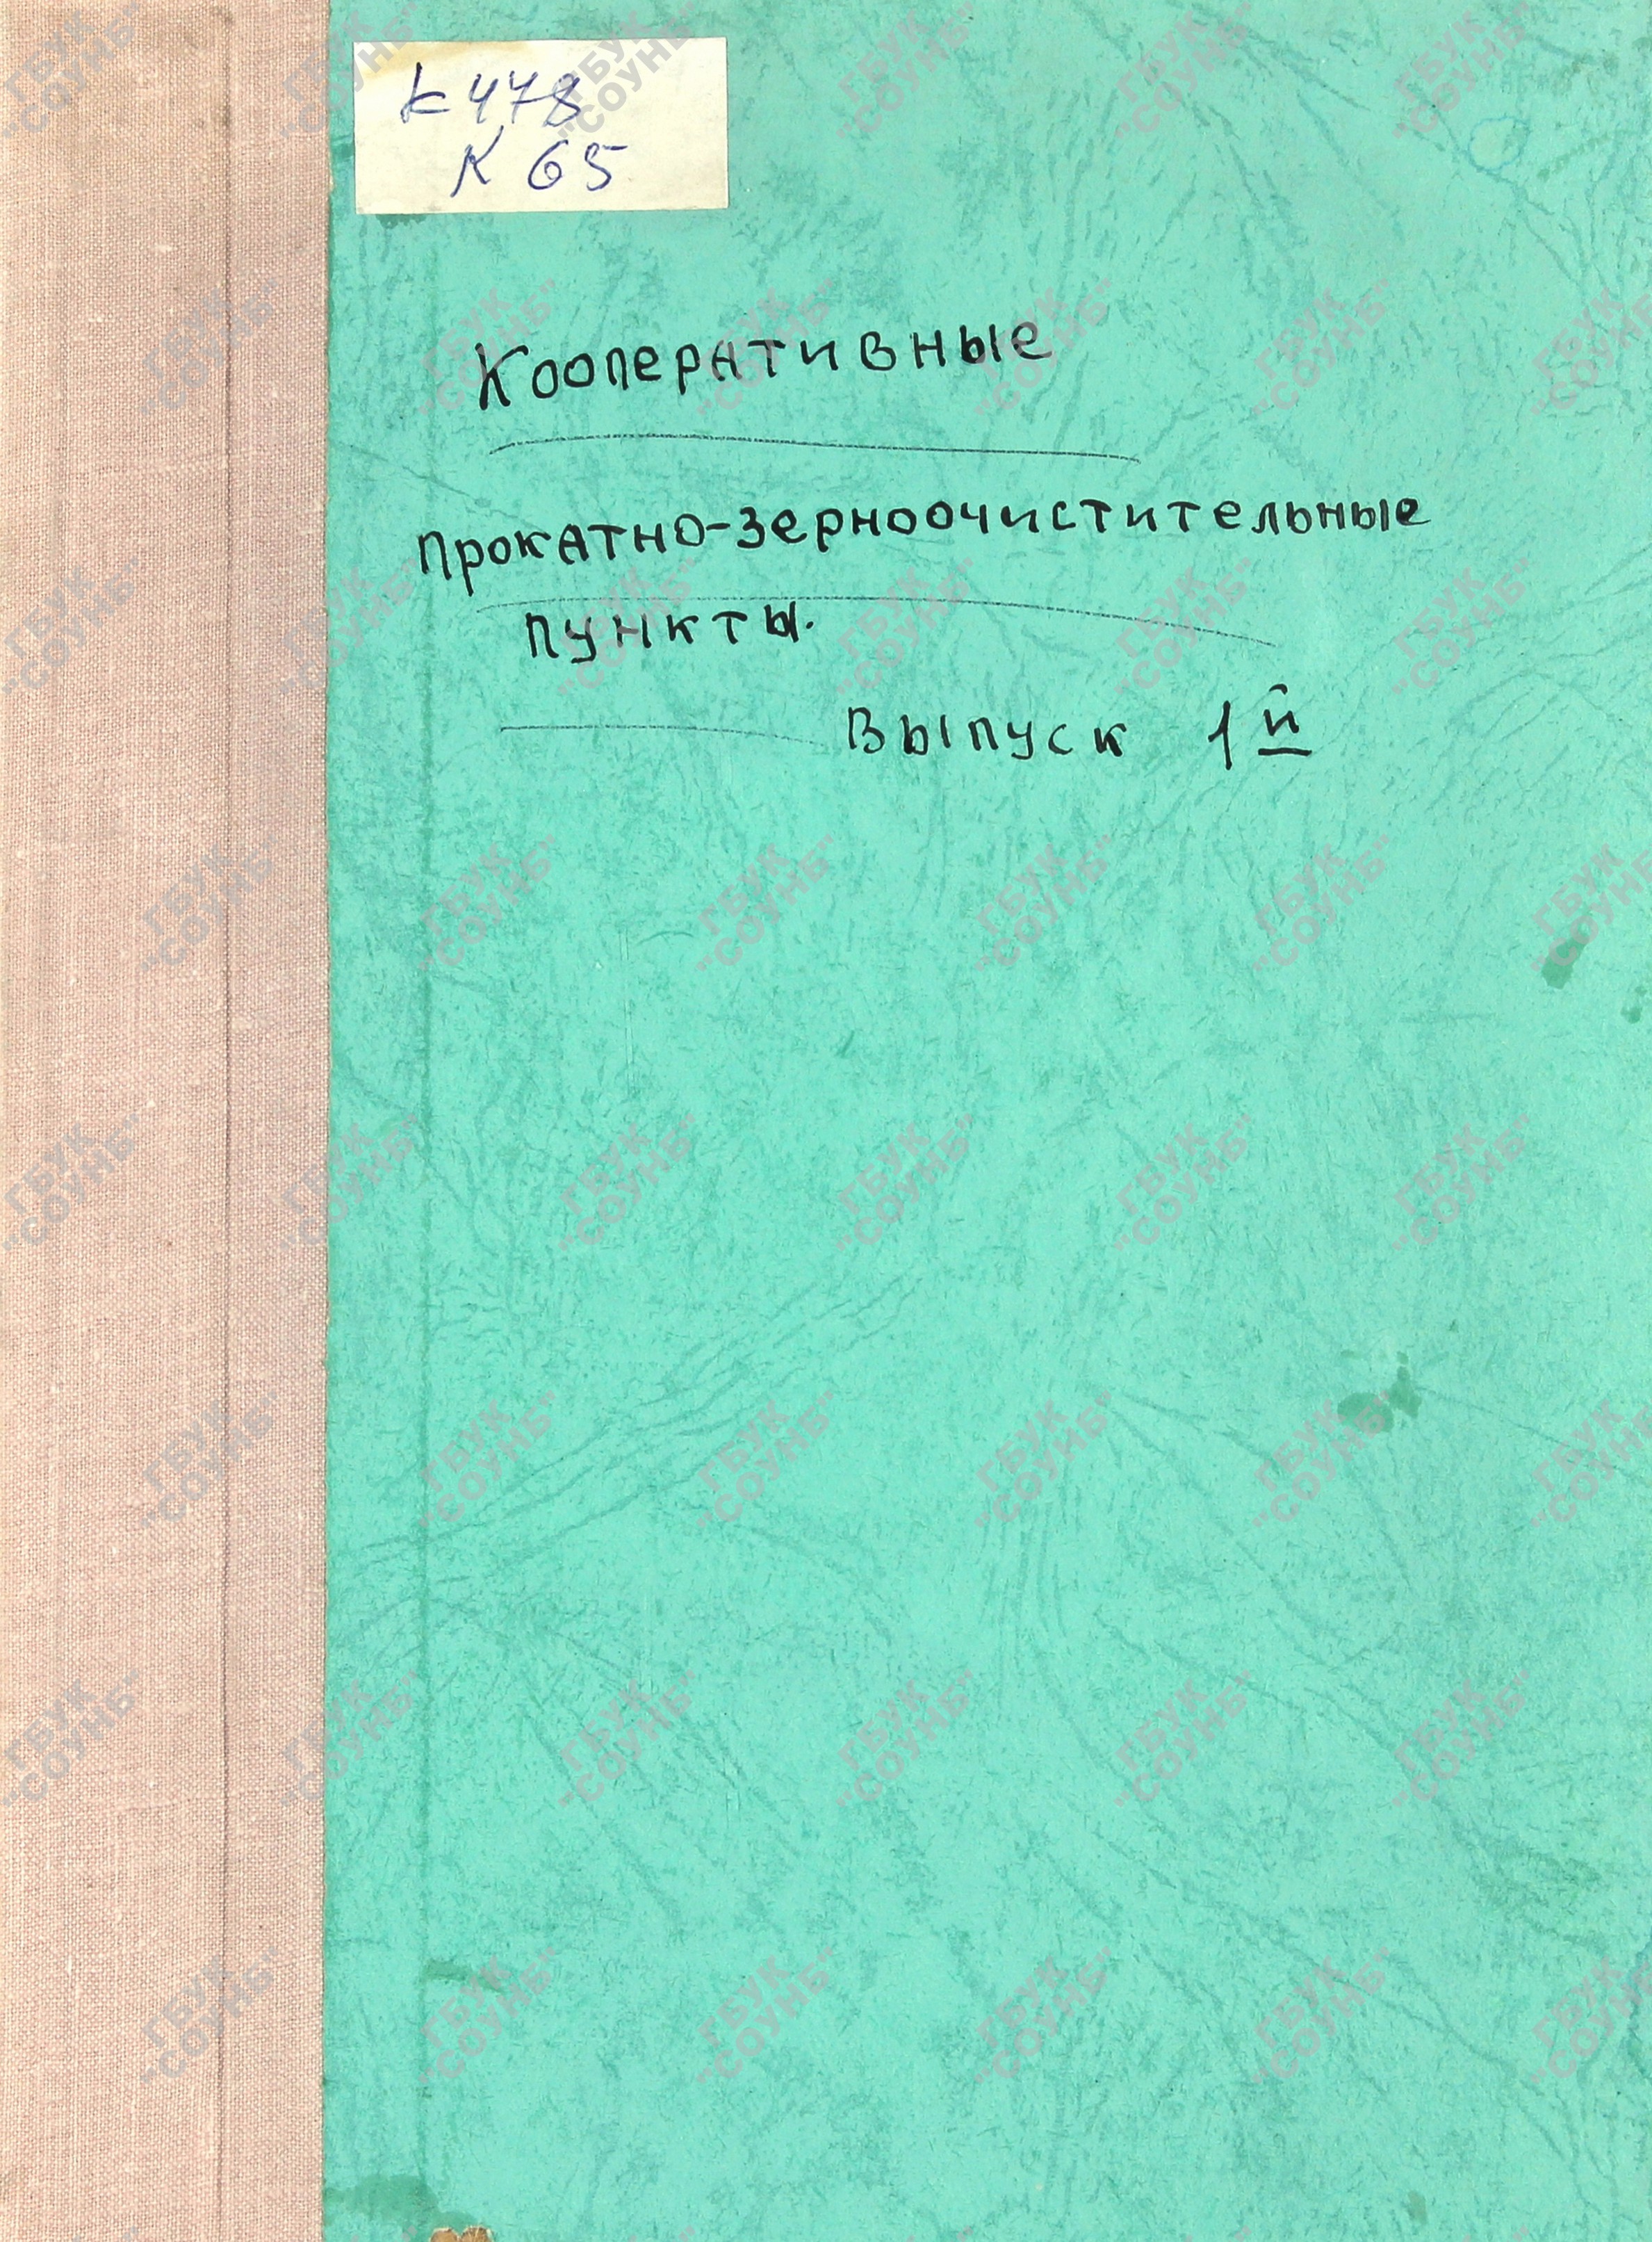 к478
К 65
Кооперативные
прокатно-зерноочистительные
пункты.
Выпуск 1й
ГБУК
"СОУНБ"